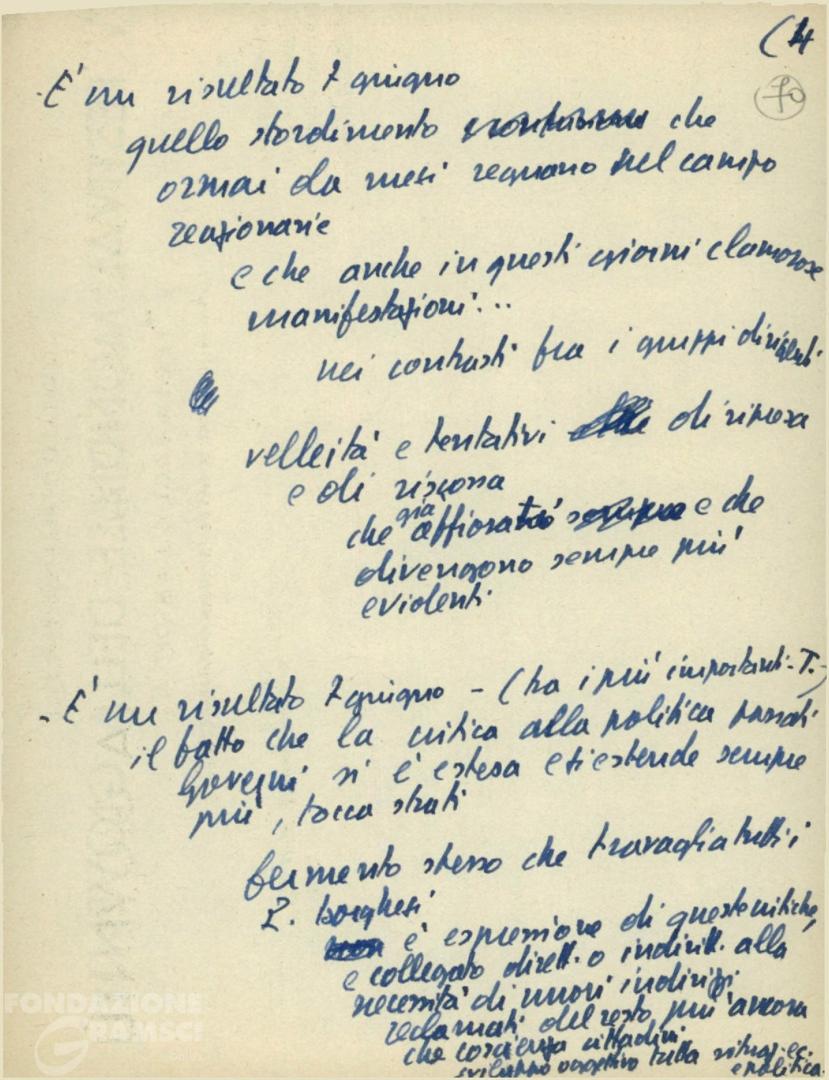 (4
70
- E' un risultato 7 giugno
quello stordimento che
ormai da mesi regnano nel campo
reazionarie
e che anche in questi giorni clamorose
manifestazioni...
nei contrasti fra i gruppi dirigenti
velleità e tentativi di ripresa
e di riscossa
che già affiorati e che
divengono sempre più
evidenti
- E' un risultato 7 giugno - (tra i più importanti - T.)
il fatto che la critica alla politica passati
Governi si è estesa e si estende sempre
più, tocca strati
fermento stesso che travaglia tutti i
P. borghesi
è espressione di queste critiche,
e collegato dirett. o indirett. alla
necessità di nuovi indirizzi
reclamati del resto, più ancora
che coscienza cittadini
sviluppo oggettivo della situaz. ec.
e politica.
FONDAZIONE
GRAMSCI